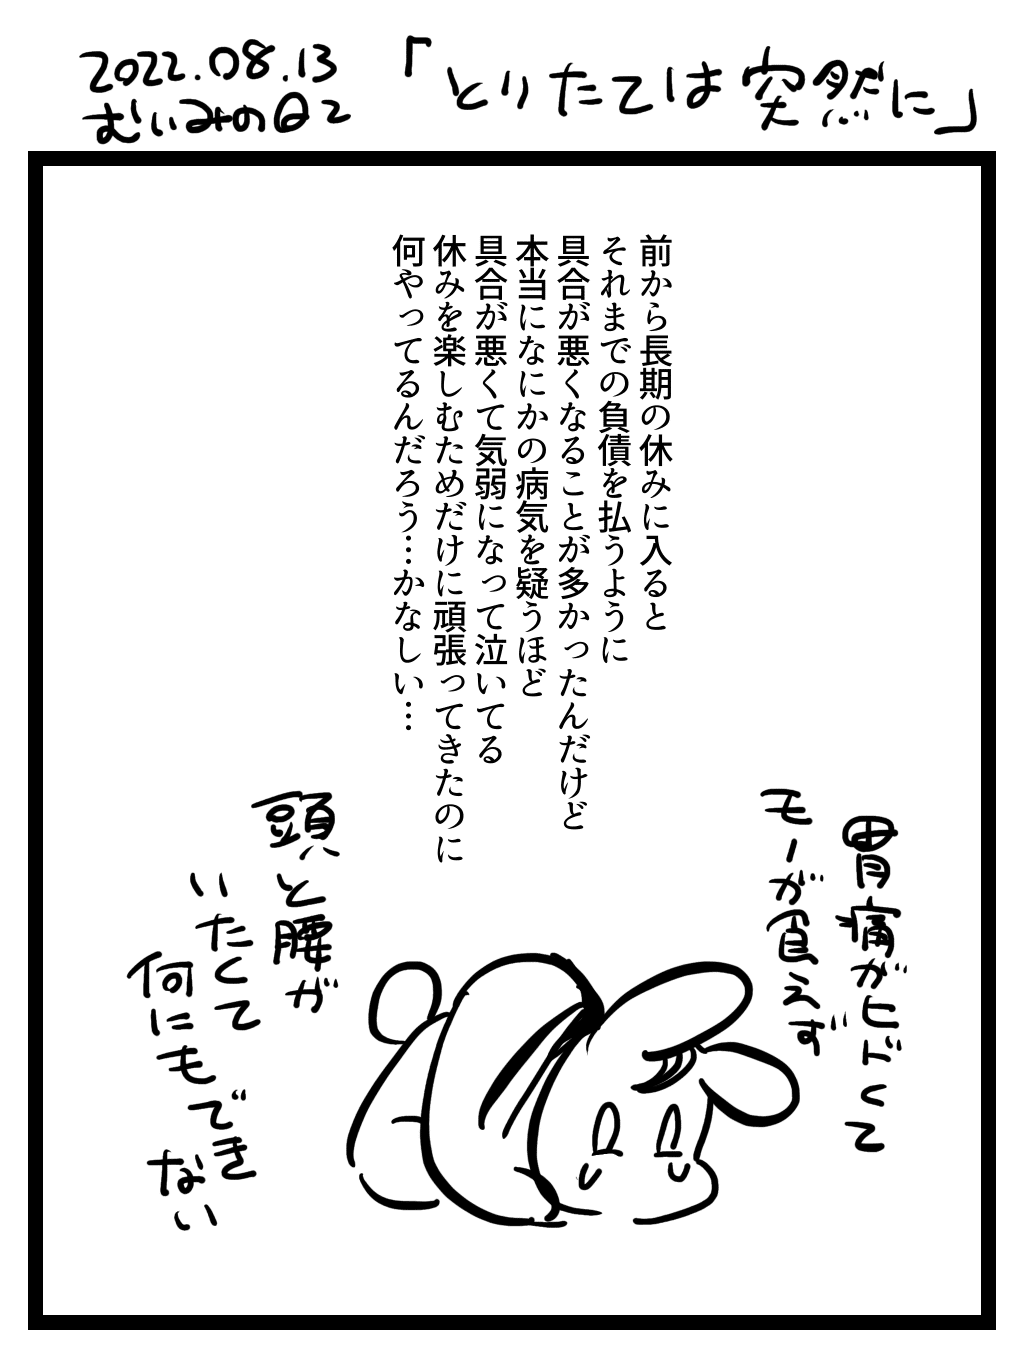 2022.08.13
むいみの日2
「とりたては突然に」
前から長期の休みに入ると
それまでの負債を払うように
具合が悪くなることが多かったんだけど
本当になにかの病気を疑うほど
具合が悪くて気弱になって泣いてる
休みを楽しむためだけに頑張ってきたのに
何やってるんだろう…かなしい…
胃痛がヒドくて
モノが食えず
頭と腰が
いたくて
何にもでき
ない